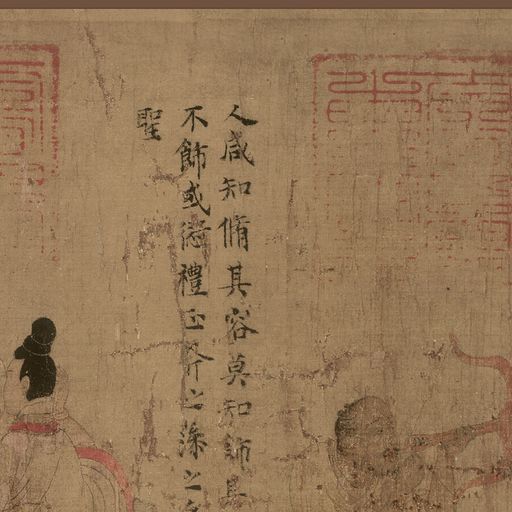 人咸知脩其容莫知飾其
不飾或愆禮正斧之藻之
聖